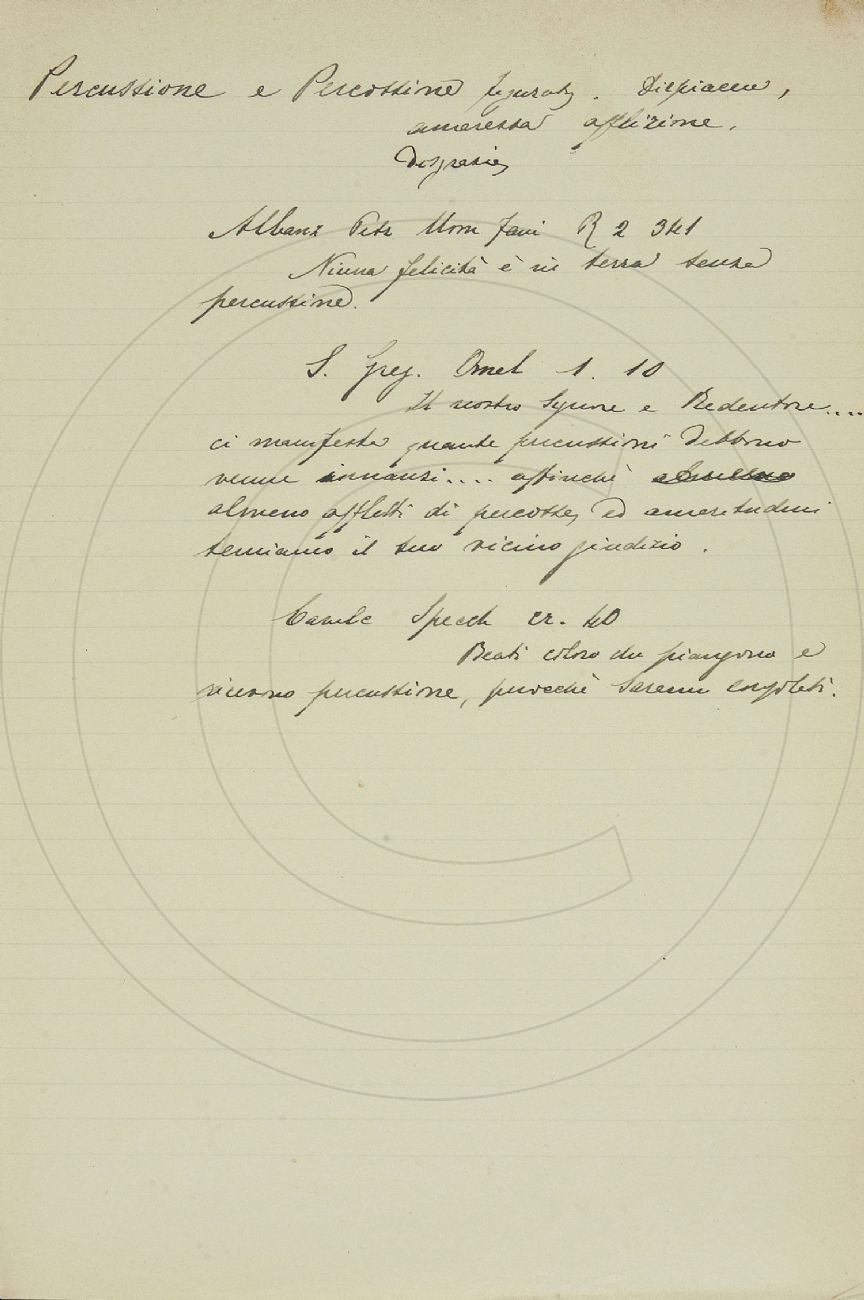 Percussione e Percossione figurato. Dispiacere,
amarezza afflizione.
Disgrazia
Albanz Petr Uom fam R 2 341
Niuna felicità è in terra senza
percussione.
S. Greg. Omel 1. 10
Il nostro Signore e Redentore....
ci manifesta quante percussioni debbono
venire innanzi.... affinchè
almeno afflitti di percosse, ed amaritudini
temiamo il suo vicino giudizio.
Cavalc Specch cr. 40
Beati coloro che piangono e
ricevono percussione, perocchè saranno consolati.